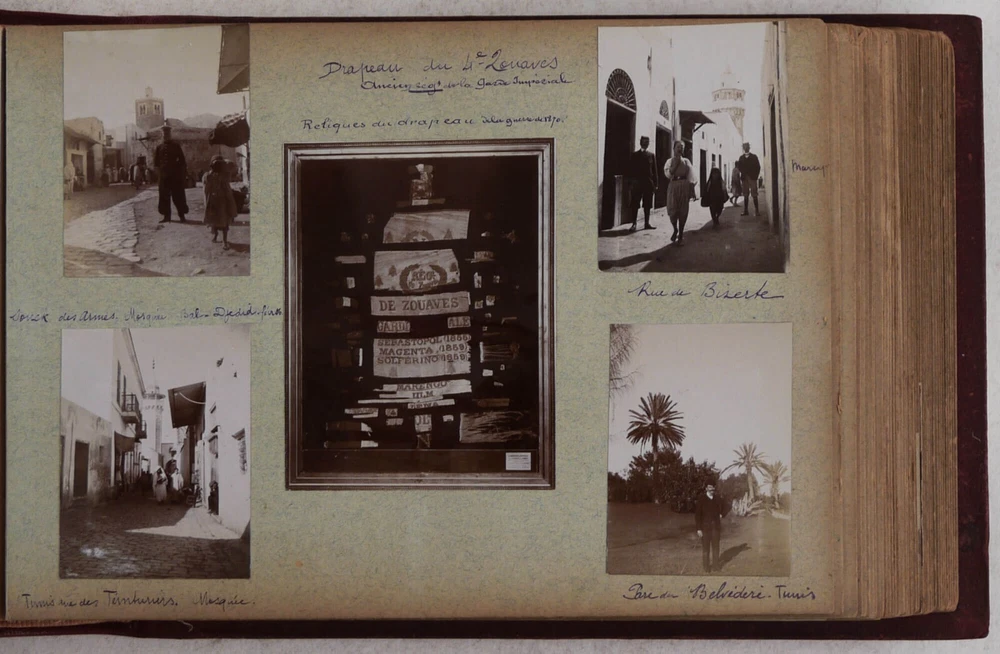 Drapeau du 4e Zouaves
Ancien Regt de la Garde Impériale
Reliques du drapeau de la guerre de 1870.
des Armes. Mosquée. Bab-Djedid.
DE ZOUAVES
JARDI ALE
SEBASTOPOL (185
MAGENTA (1859
SOLFERINO 1859
MARENGO
ULM
Rue de Bizerte
Tunis rue des Teinturiers. Mosquée.
Parc du Belvédère. Tunis